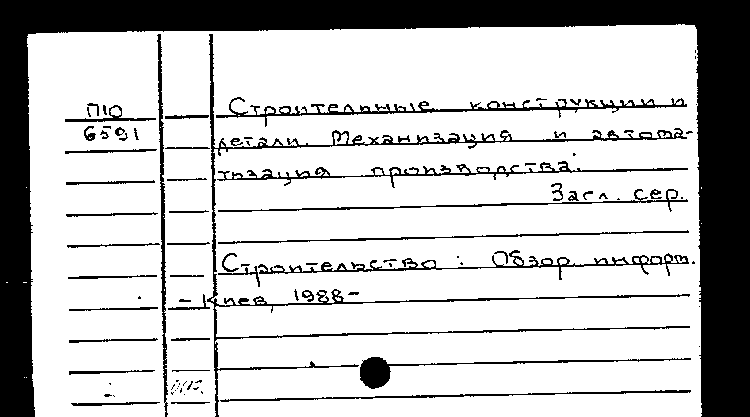 П10
6591
Строительные конструкции и
детали. Механизация и автома-
тизация производства:
Загл. сер.
Строительство : Обзор. информ.
- Киев, 1988-